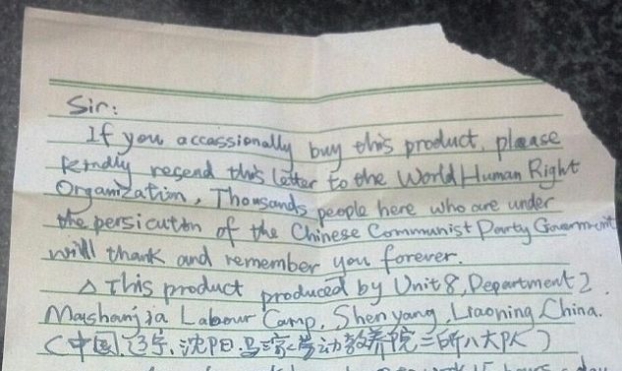 Sir:
If you accassionally buy this product, please
kindly resend this letter to the World Human Right
Organization, Thousands people here who are under
the persicution of the Chinese Communist Party Government
will thank and remember you forever.
△ This product produced by Unit 8, Department 2.
Mashanjia Labour Camp, Shenyang, Liaoning, China.
(中国.辽宁、沈阳.马三家劳动教养院二所八大队)
work 15 hours a day